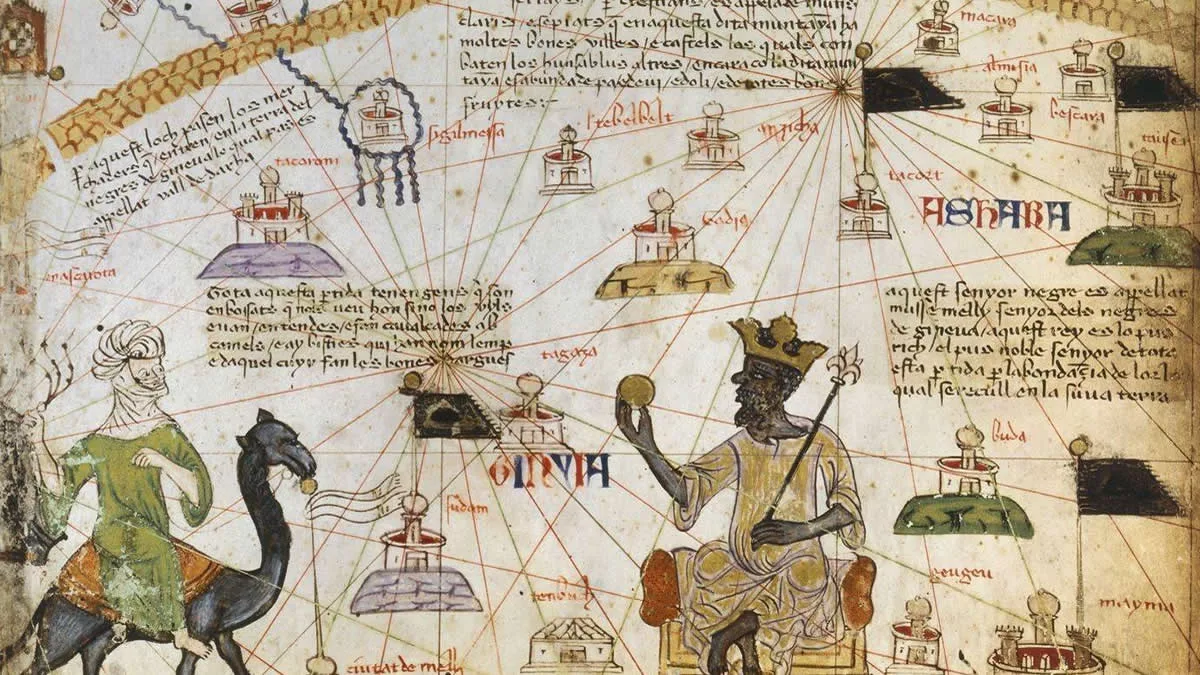 claris e sepiats q en aquesta dita muntaya ha
moltes bones villes / e castels los quals con
baten los huns ab los altres / encara co la dita mun
tanya es abunda de pa e de vi / e d oli / e de totes bones
fruytes :-
P aquest loch pasen los mer
chaders q entren en la terra del
negres de gineua lo qual pas es
appellat vall de darha
macara
almsia
bescara
sigilmessa
tebelbelt
tacoroni
tacort
ASHARA
Gota aquesta ptida tenen gens q son
enbossats q nols veu hom sino los vyls
e van en tendes / e fan caualcades ab
camels / e ay bisties qui han nom lemp
e daquel cuyr fan les bones dargues
aquest senyor negre es appellat
musse melly senyor dels negres
de gineua / aquest rey es lo pus
rich / el pus noble senyor de tota
esta ptida p labondancia de lor lo
qual se recull en la suua terra
tagaza
GINYIA
buda
sudam
tenbuch
geugeu
mayma
ciutat de melli